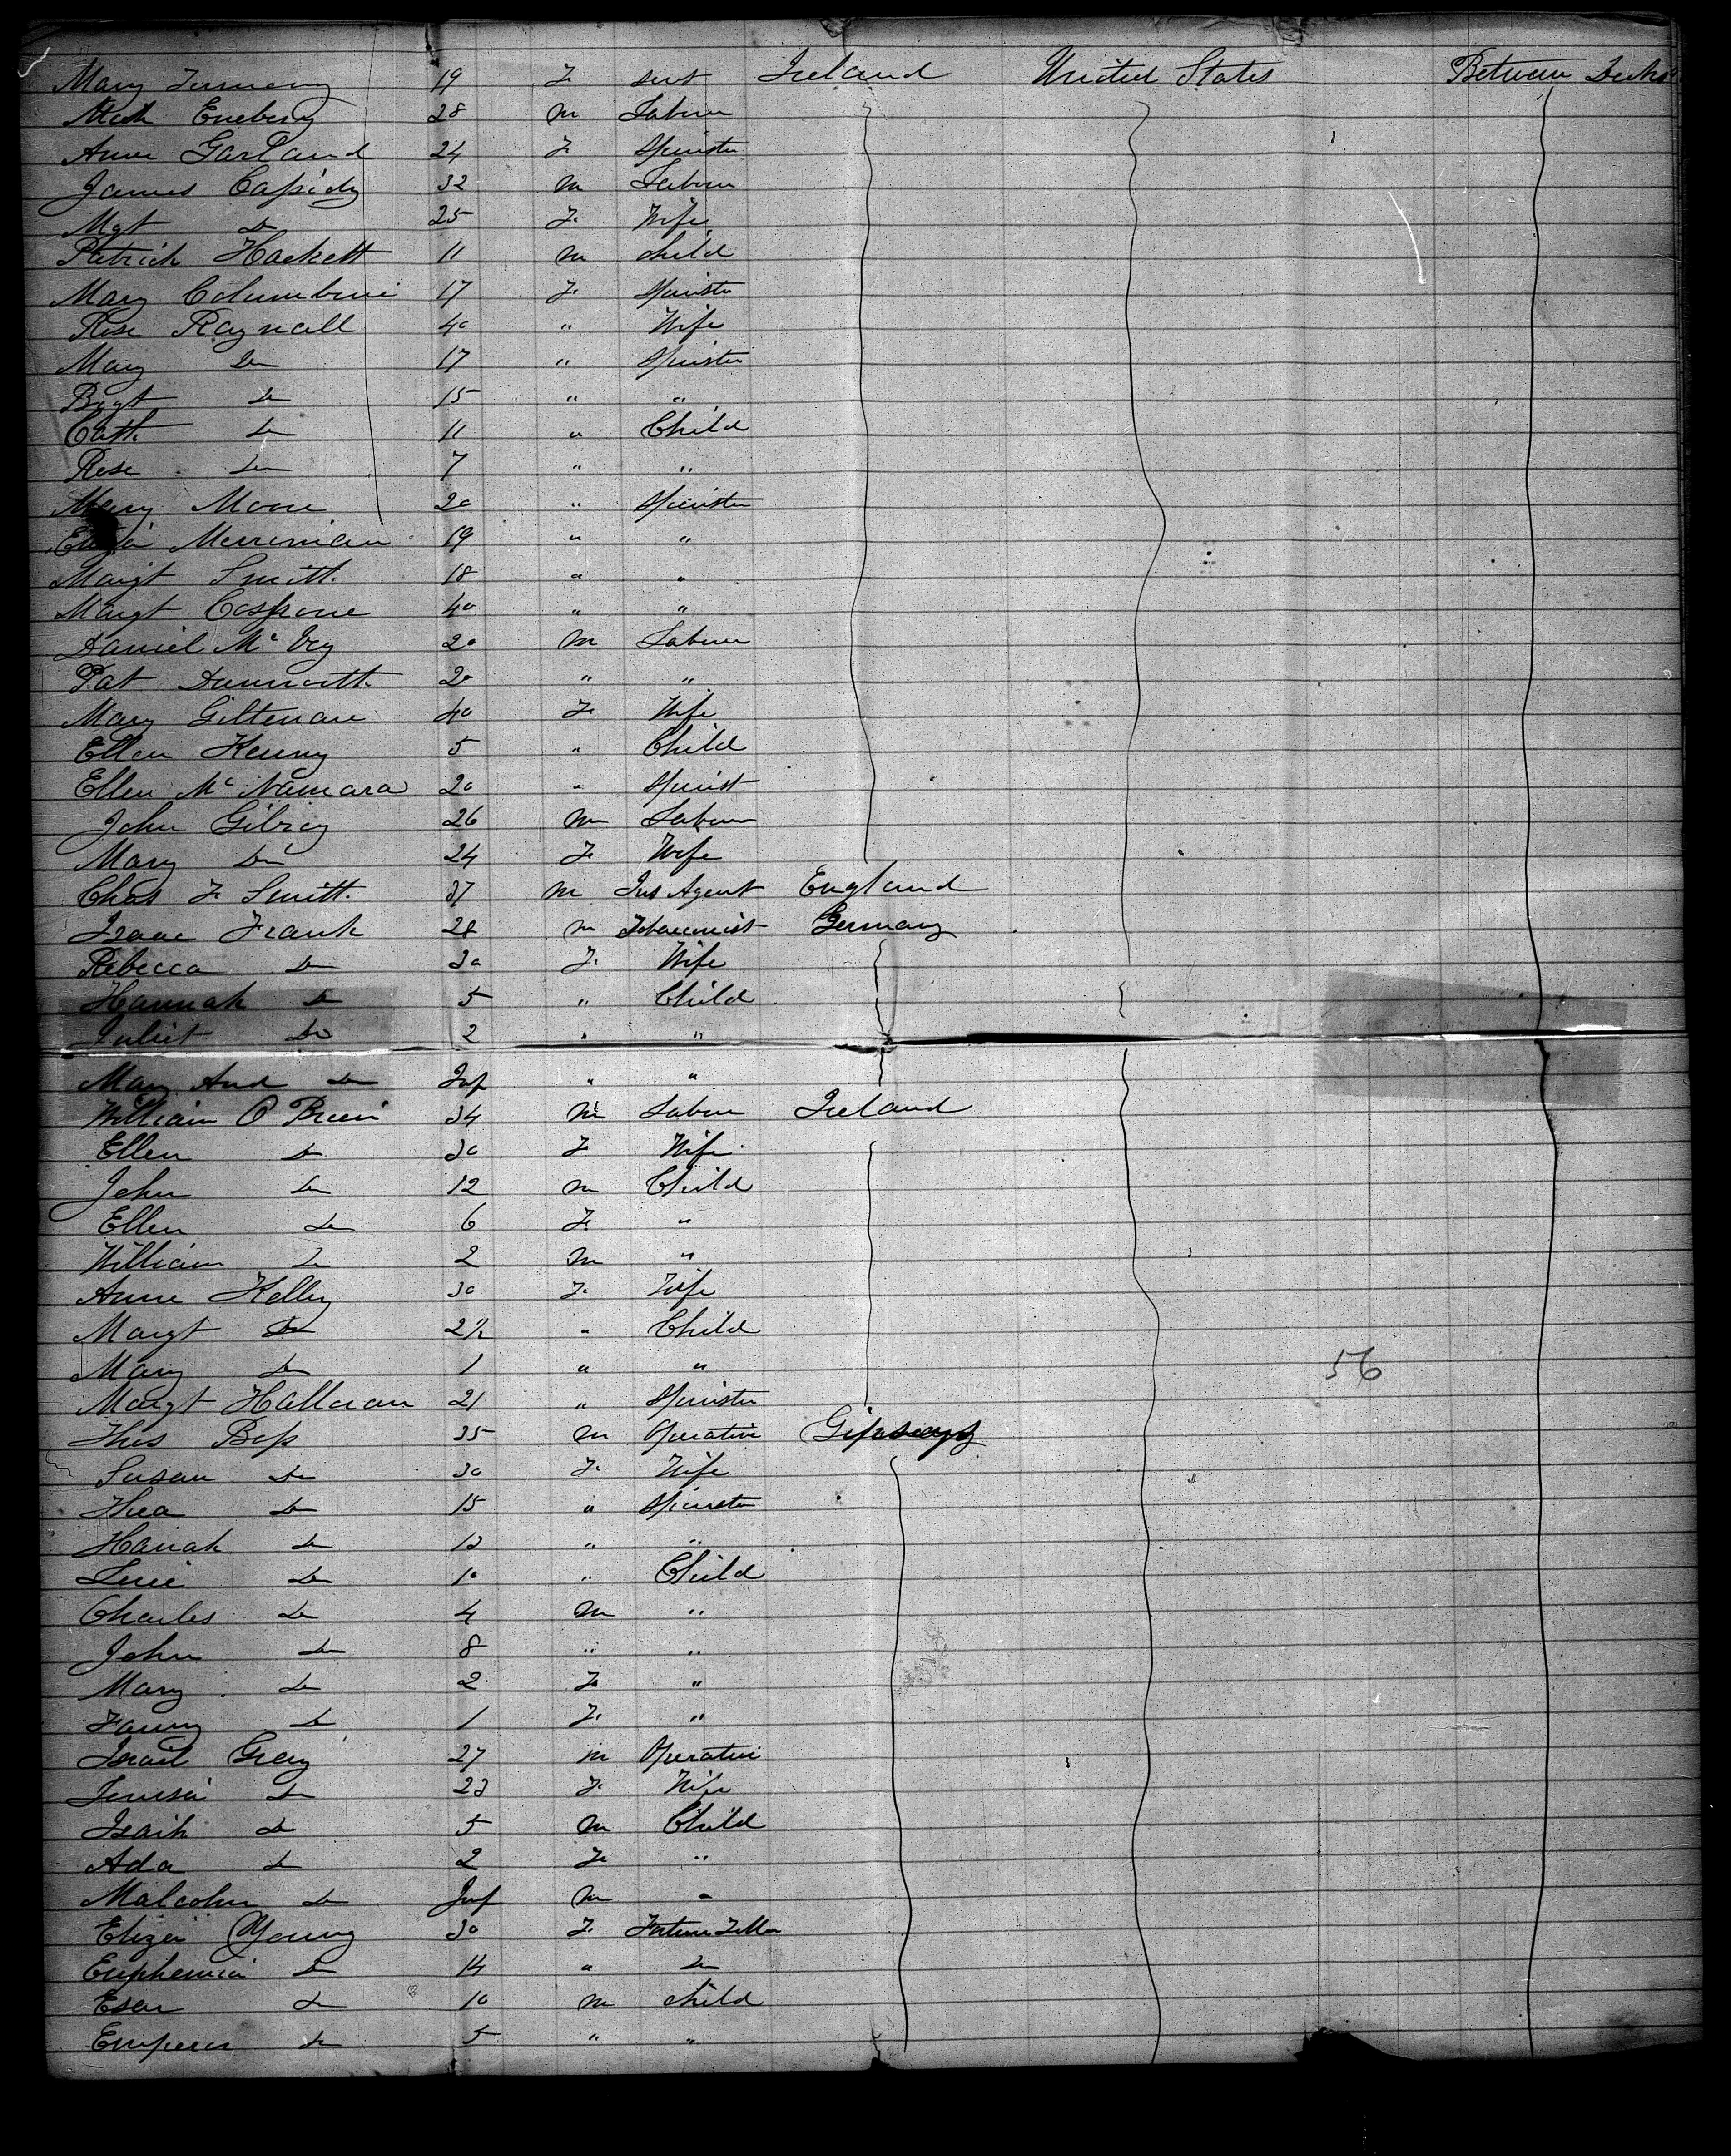 Mary 19 F Servt Ireland United States Between Decks
Mich Enebery 28 m Labour
Anne Garland 24 F Spinster
James Cassidy 32 m Labour
Mgt Do 25 F Wife
Patrick Hackett 11 m child
Mary Columbine 17 F Spinster
Rose Raynall 40 " Wife
Mary Do 17 " Spinster
Brgt Do 15 " "
Cath Do 11 " Child
Rose Do 7 " "
Mary Moore 20 " Spinster
Merriman 19 " "
Margt Smith 18 " "
Margt 40 " "
Daniel Mc Vey 20 m Labour
Pat 20 " "
Mary Giltenane 40 F Wife
Ellen Kenny 5 " Child
Ellen Mc Namara 20 " Spinst
John Gilroy 26 m Labour
Mary Do 24 F Wife
Chas F Smith 37 m Ins Agent England
Isaac Frank 28 m Tobacconist Germany
Rebecca Do 30 F Wife
Hannah Do 5 " Child
Juliet Do 2 " "
Mary And Do Inf " "
William O Brien 34 m Labour Ireland
Ellen Do 30 F Wife
John Do 12 m Child
Ellen Do 6 F "
William Do 2 m "
Anne Kelly 30 F Wife
Margt Do 2½ " Child
Mary Do 1 " "
56
Margt Halloran 21 " Spinster
Thos Bess 35 m Operative Gipseys
Susan Do 30 F Wife
Do 15 " Spinster
Hanah Do 12 " "
Do 10 " Child
Charles Do 4 m "
John Do 8 " "
Mary Do 2 F "
Fanny Do 1 F "
Israil Grey 27 m Operative
Do 23 F Wife
Isaih Do 5 m Child
Ada Do 2 F "
Malcolm Do Inf m "
Eliza Young 30 F Fortune Teller
Euphemia Do 14 " Do
Esau Do 10 m child
Emperor Do 5 " "